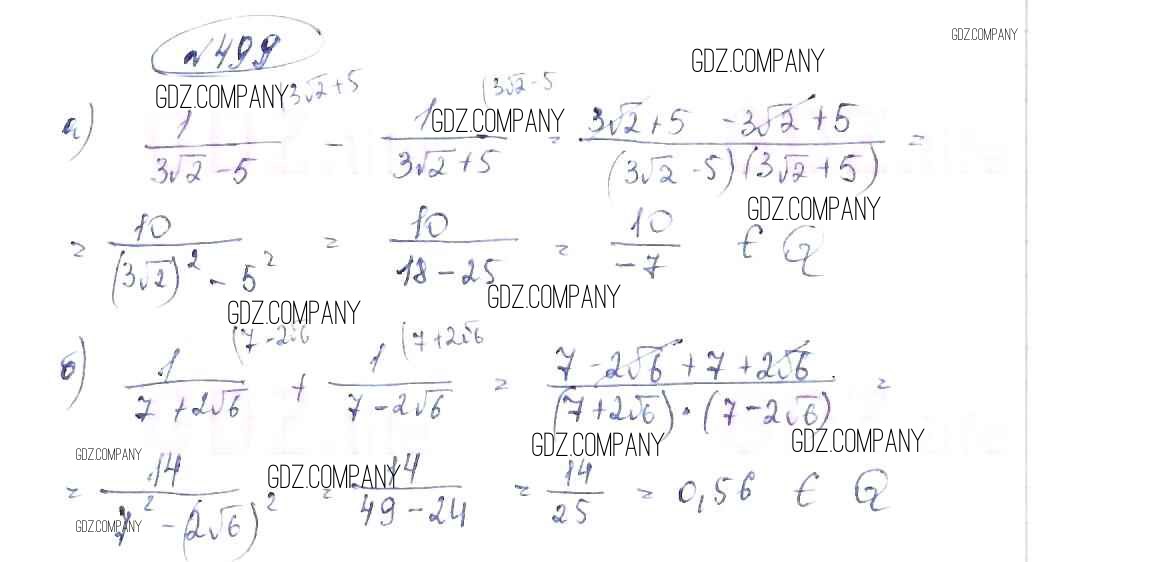 №499
GDZ.COMPANY
GDZ.COMPANY
GDZ.COMPANY 3√2+5 (3√2-5
а) 1/(3√2-5) - 1/(3√2+5) = (3√2+5 -3√2+5)/((3√2-5)(3√2+5)) =
GDZ.COMPANY
GDZ.COMPANY
= 10/((3√2)²-5²) = 10/(18-25) = 10/(-7) ∈ Q
GDZ.COMPANY
GDZ.COMPANY
(7-2√6 (7+2√6
б) 1/(7+2√6) + 1/(7-2√6) = (7-2√6+7+2√6)/((7+2√6)·(7-2√6)) =
GDZ.COMPANY
GDZ.COMPANY
GDZ.COMPANY
GDZ.COMPANY
= 14/(7²-(2√6)²) = 14/(49-24) = 14/25 = 0,56 ∈ Q
GDZ.COMPANY